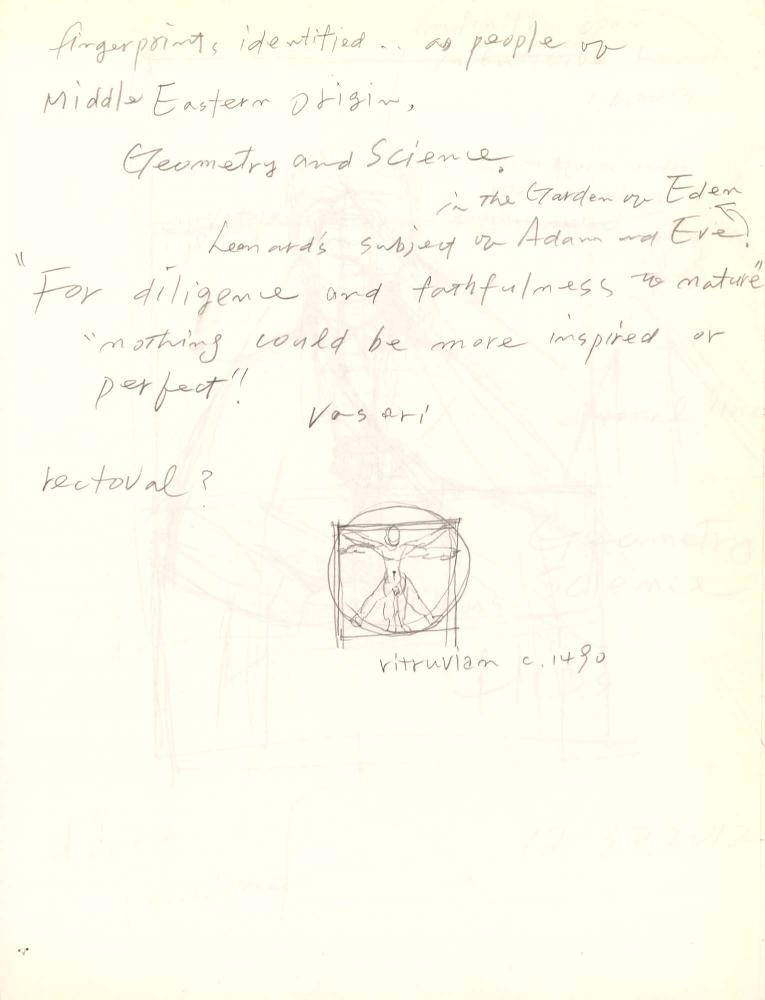 fingerprints identified.. as people of
Middle Eastern Origin,
Geometry and Science.
in the Garden of Eden
Leonard's subject of Adam and Eve.
"For diligence and faithfulness to nature"
"nothing could be more inspired or
perfect"!
Vasari
rectoval?
vitruvian c. 1490